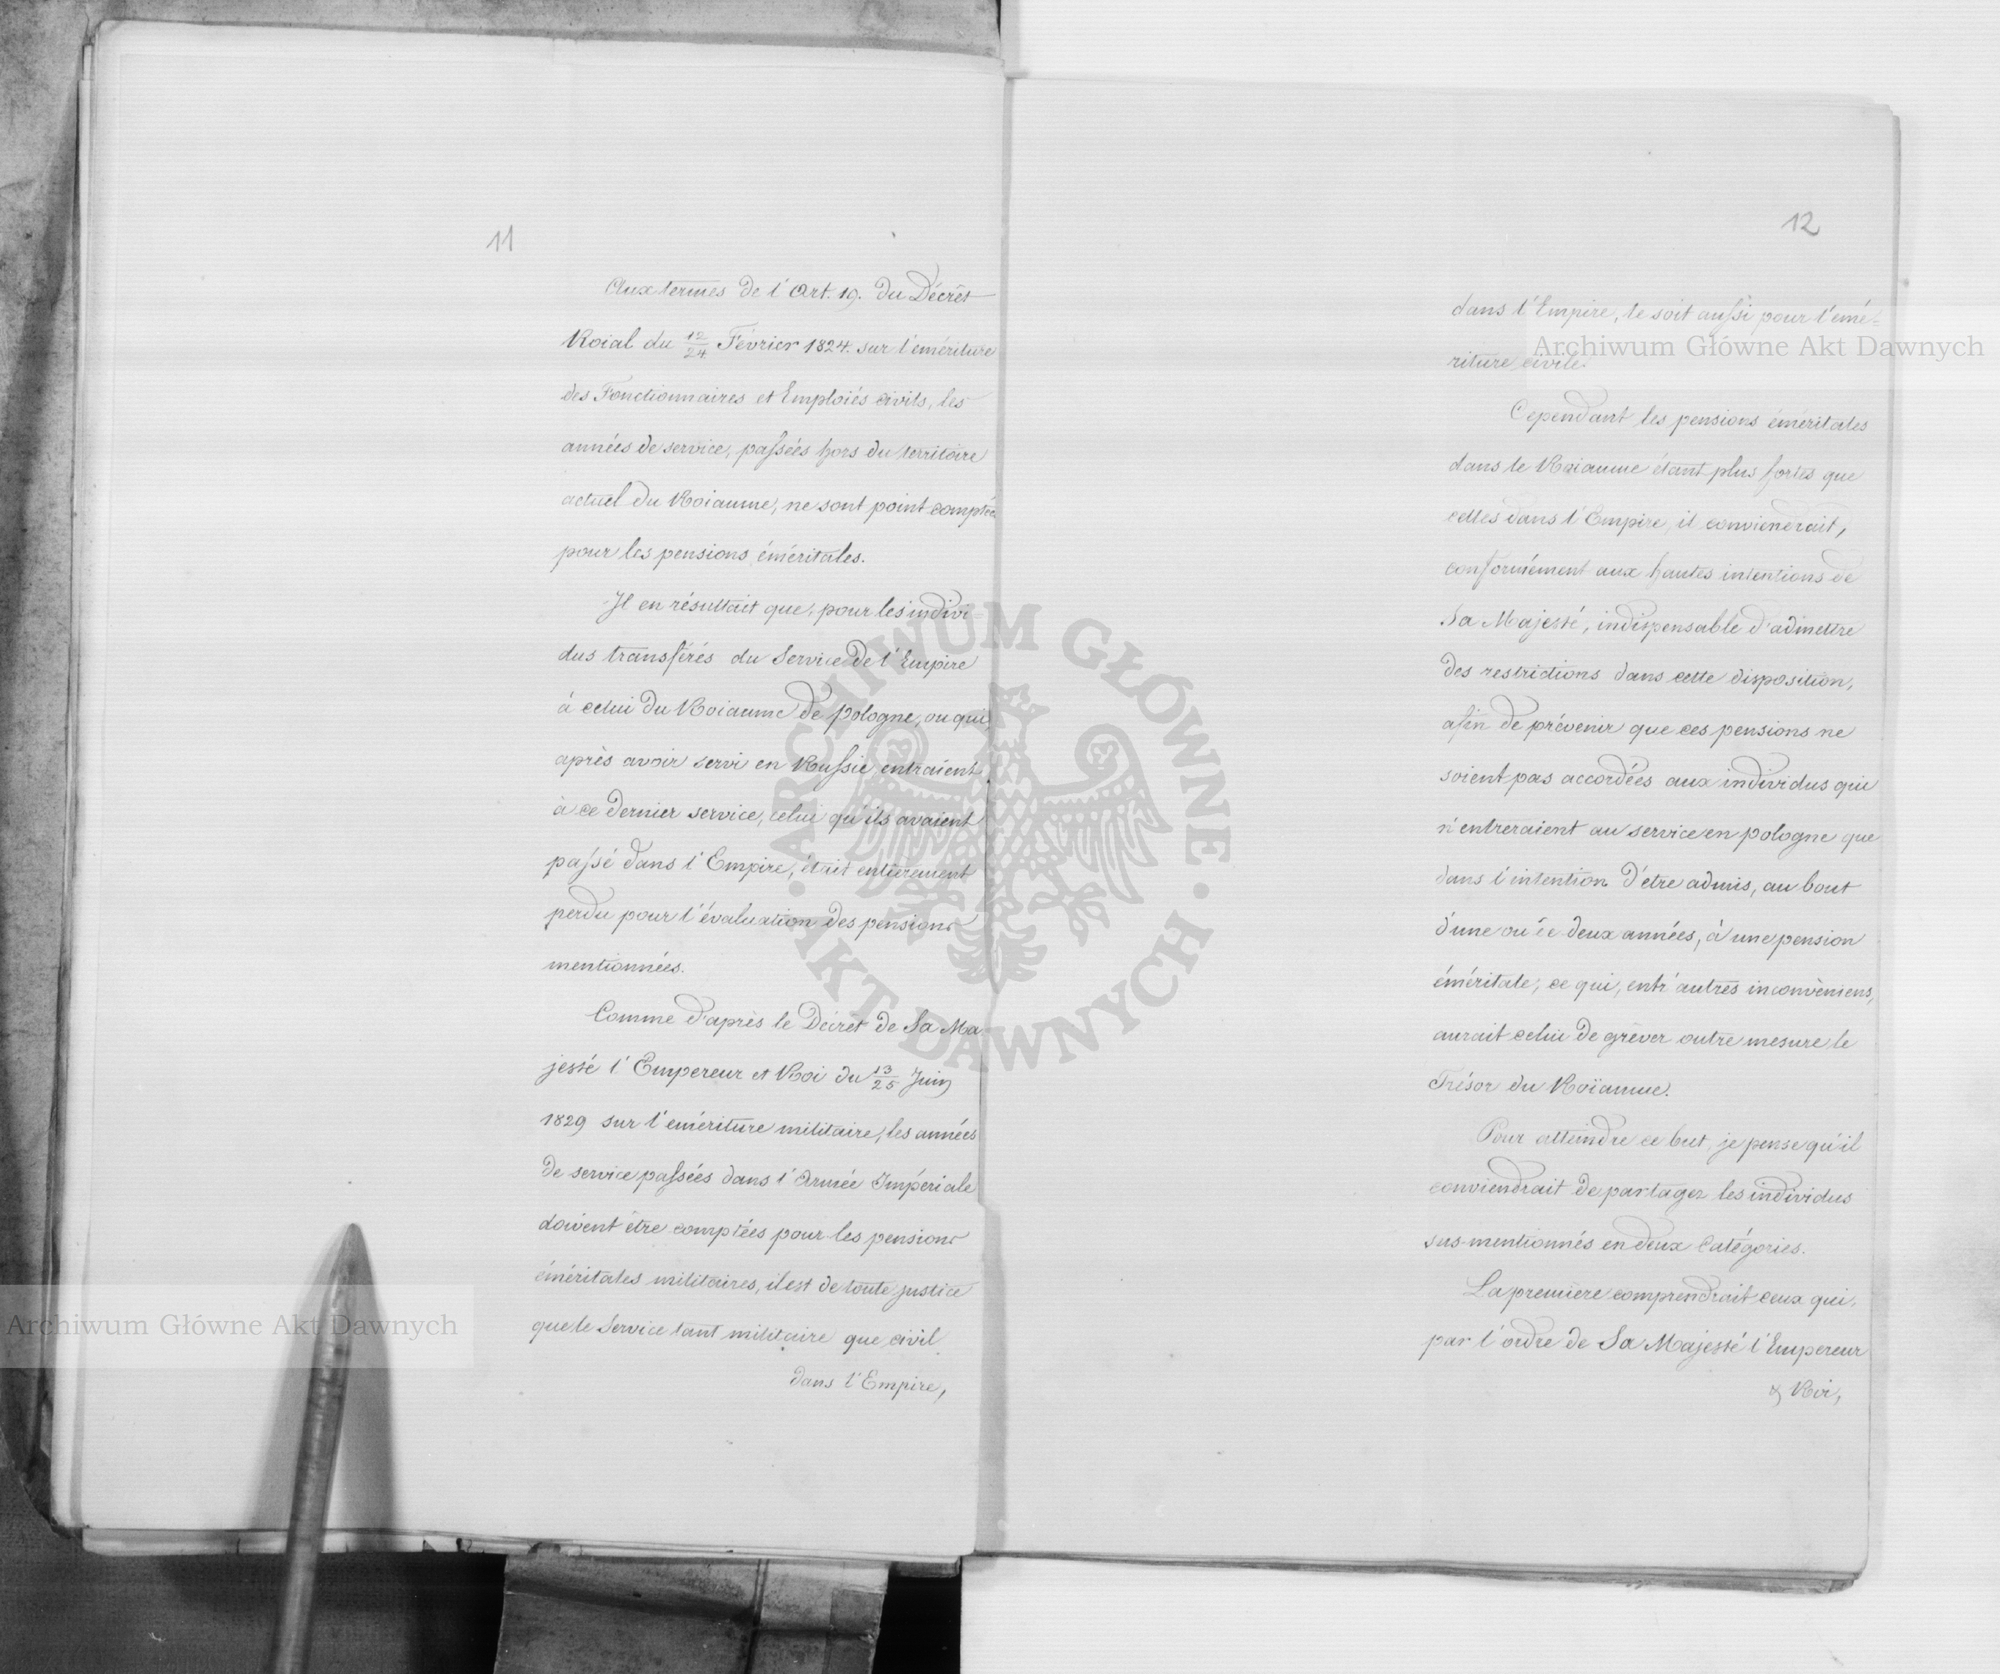 11
Aux termes de l'Art. 19. du Décret
Roial du 12/24 Février 1824. sur l'eméríture
des Fonctionnaires et Emploiés civils, les
années de service, passées hors du territoire
actuel du Roiaume, ne sont point comptées
pour les pensions éméritales.
Il en résultait que, pour les indivi-
dus transférés du Service de l'Empire
à celui du Roiaume de Pologne, ou qui
après avoir servi en Russie, entraient
à ce dernier service, celui qu'ils avaient
passé dans l'Empire, était entièrement
perdu pour l'évaluation des pensions
mentionnées.
Comme d'après le Décret de Sa Ma-
jesté l'Empereur et Roi du 13/25 Juin
1829 sur l'emériture militaire, les années
de service passées dans l'Armée Impériale
doivent être comptées pour les pensions
éméritales militaires, il est de toute justice
que le Service tant militaire que civil
dans l'Empire,
12
dans l'Empire, le soit aussi pour l'emé-
riture civile.
Cependant les pensions éméritales
dans le Roiaume étant plus fortes que
celles dans l'Empire, il conviendrait,
conformément aux hautes intentions de
Sa Majesté, indispensable d'admettre
des restrictions dans cette disposition,
afin de prévenir que ces pensions ne
soient pas accordées aux individus qui
n'entreraient au service en Pologne que
dans l'intention d'être admis, au bout
d'une ou de deux années, à une pension
éméritale, ce qui, entr'autres inconvéniens,
aurait celui de gréver outre mesure le
Trésor du Roïaume.
Pour atteindre ce but, je pense qu'il
conviendrait de partager les individus
sus-mentionnés en deux Catégories.
La première comprendrait ceux qui,
par l'ordre de Sa Majesté l'Empereur
& Roi,
Archiwum Główne Akt Dawnych
Archiwum Główne Akt Dawnych
ARCHIWUM GŁÓWNE · AKT DAWNYCH ·